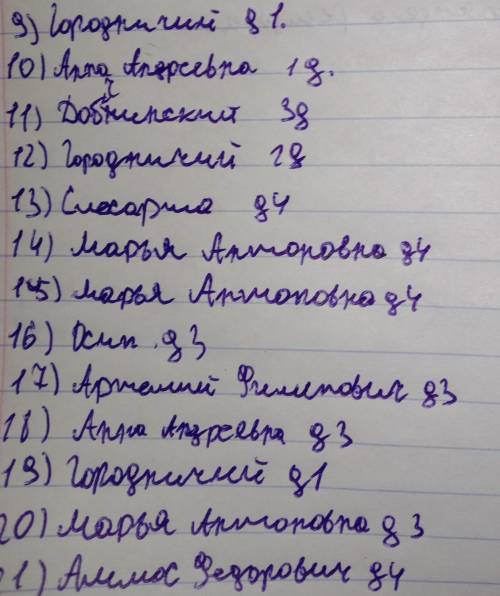 9) Городничий д 1.
10) Анна Андреевна 1 д.
11) Добчинский 3д
12) Городничий 2д
13) Слесарша д4
14) Марья Антоновна д4
15) Марья Антоновна д4
16) Осип д3
17) Артемий Филипович д3
18) Анна Андреевна д3
19) Городничий д1
20) Марья Антоновна д3
21) Аммос Федорович д4